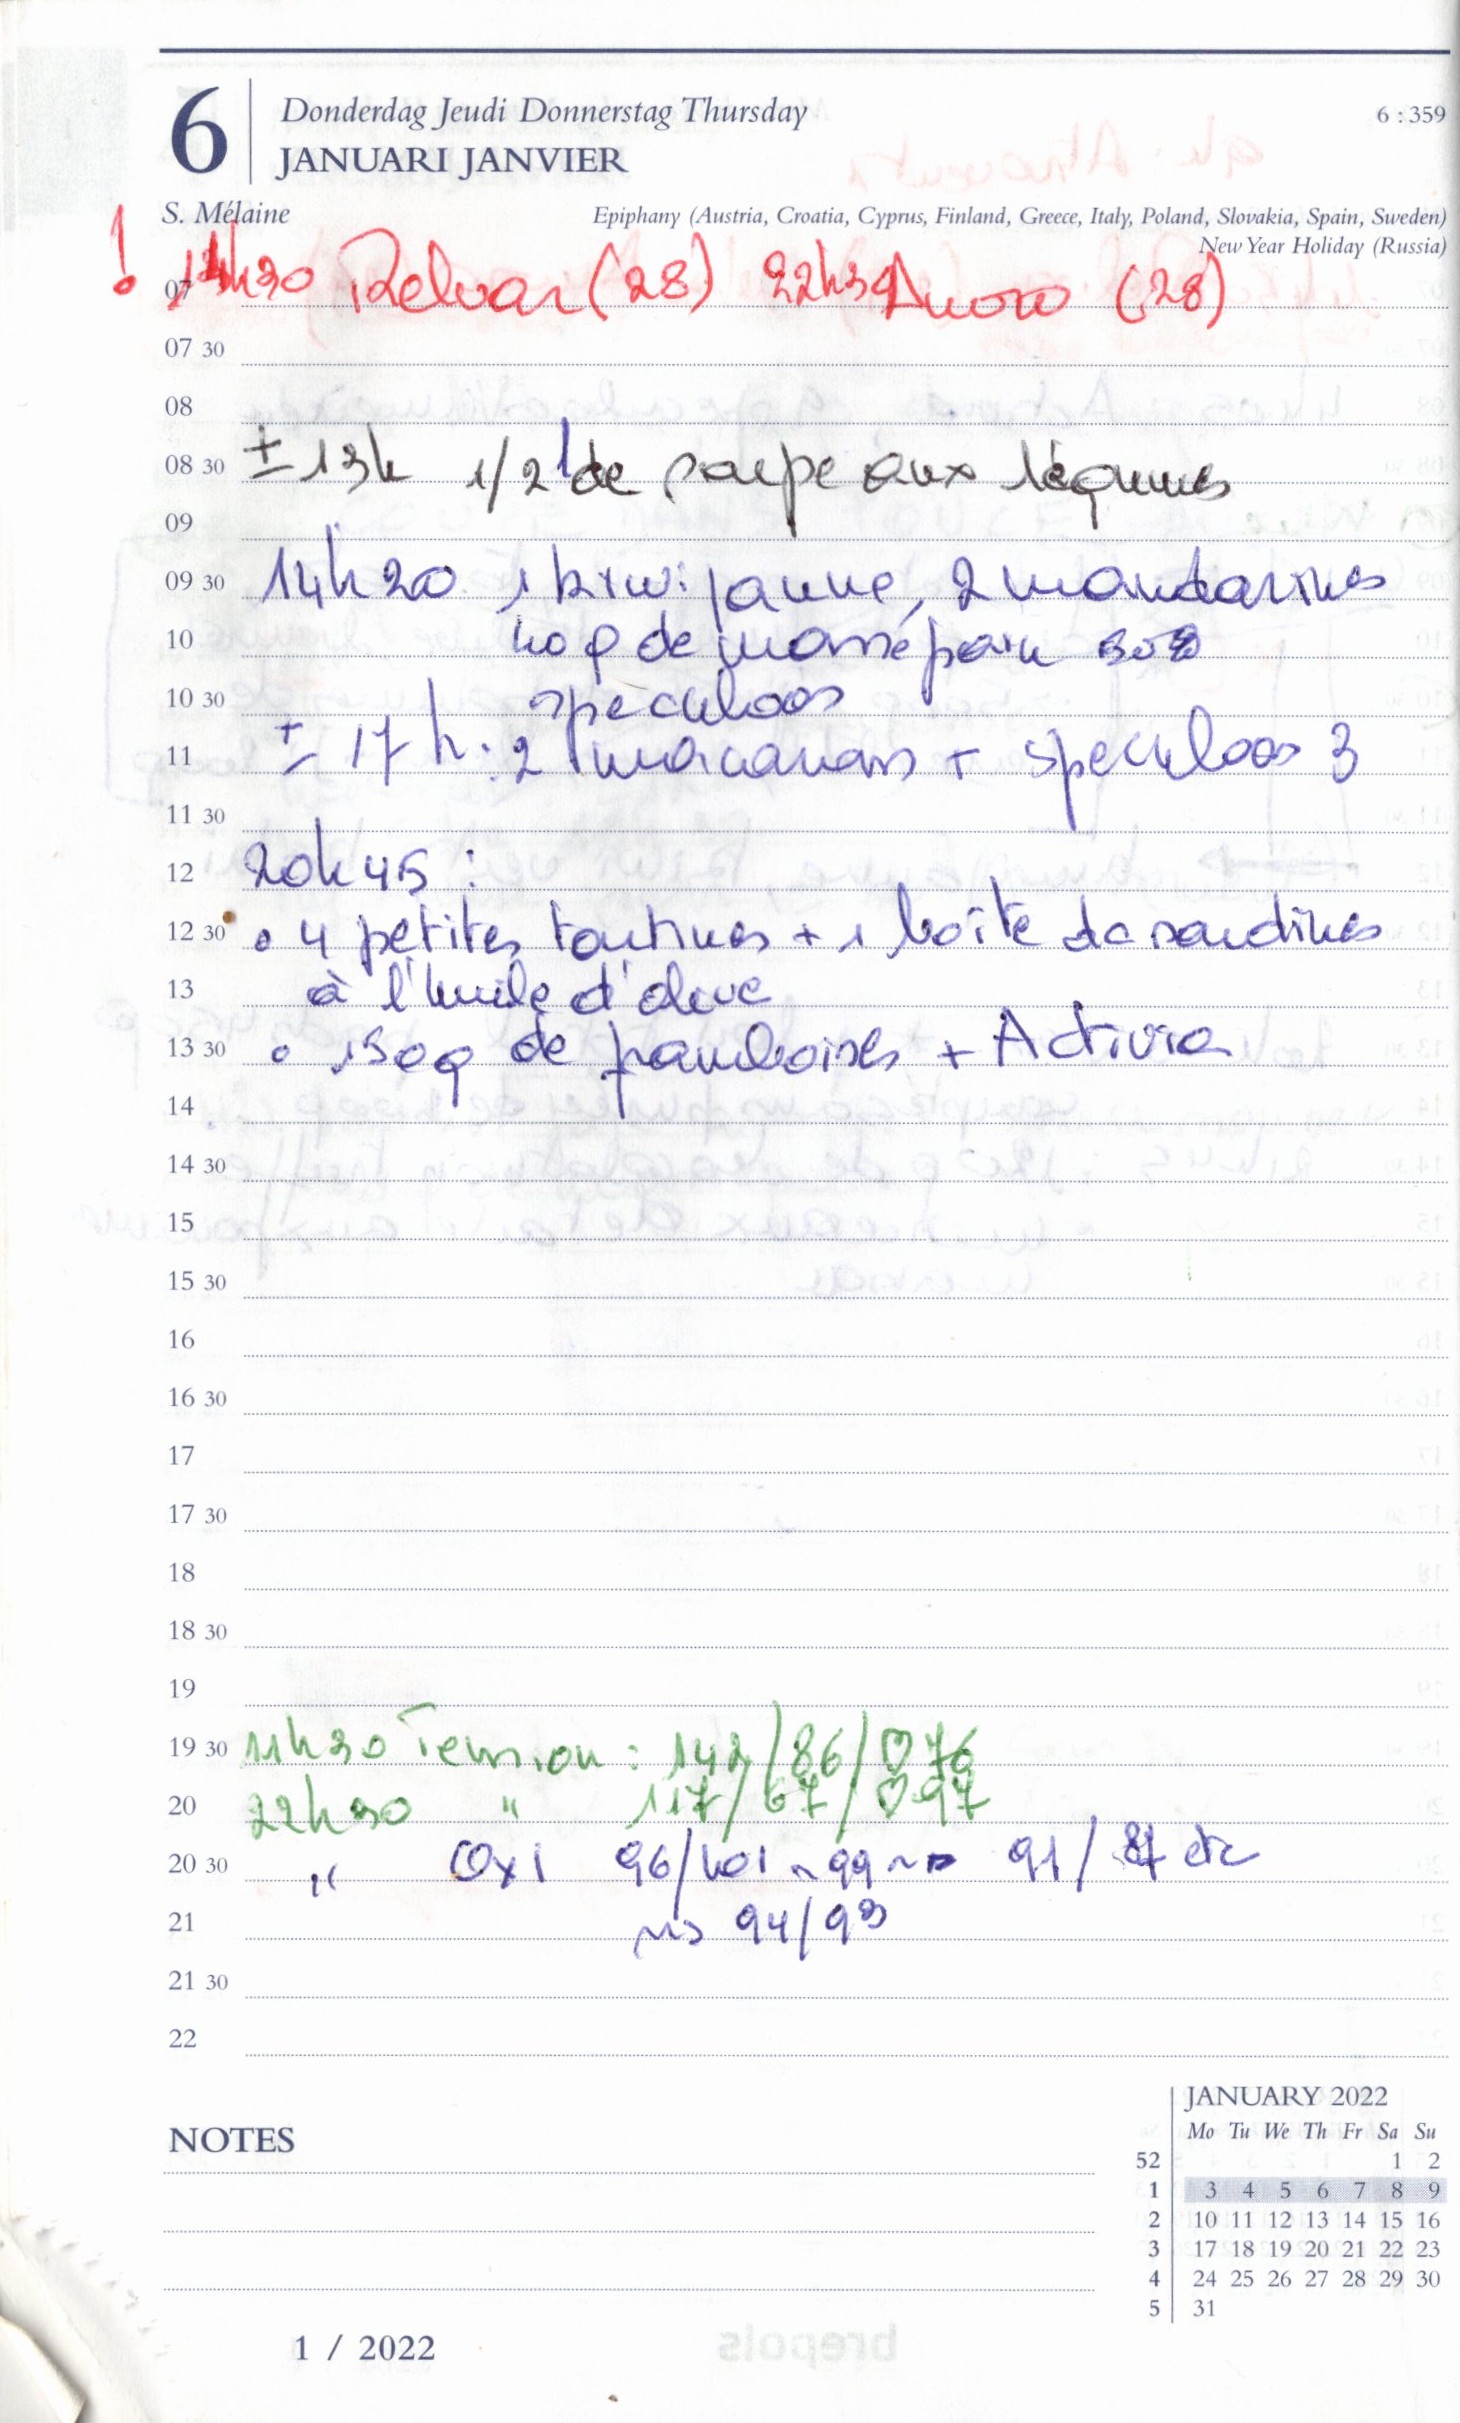 6 Donderdag Jeudi Donnerstag Thursday 6 : 359
JANUARI JANVIER
S. Mélaine Epiphany (Austria, Croatia, Cyprus, Finland, Greece, Italy, Poland, Slovakia, Spain, Sweden)
New Year Holiday (Russia)
! 11h30 Relvar (28) 22h30 Anoro (28)
07
07 30
08
08 30 ± 13h 1/2 l de soupe aux légumes
09
09 30 14h20 1 kiwi jaune, 2 mandarines
10 40 g de massepain
10 30 speculoos
11 ± 17h : 2 macarons + speculoos 3
11 30
12 20h45 :
12 30 • 4 petites tartines + 1 boîte de sardines
13 à l'huile d'olive
13 30 • 150g de framboises + Activia
14
14 30
15
15 30
16
16 30
17
17 30
18
18 30
19
19 30 11h30 Tension : 142/86/♡76
20 22h30 " 117/67/♡97
20 30 " Oxi 96/101 ~ 99 ~> 91/87 etc
21 ~> 94/93
21 30
22
NOTES
JANUARY 2022
Mo Tu We Th Fr Sa Su
52 1 2
1 3 4 5 6 7 8 9
2 10 11 12 13 14 15 16
3 17 18 19 20 21 22 23
4 24 25 26 27 28 29 30
5 31
1 / 2022